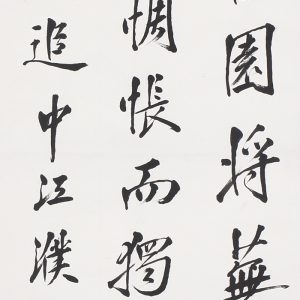 園將蕪
惆悵而獨
追中江濮